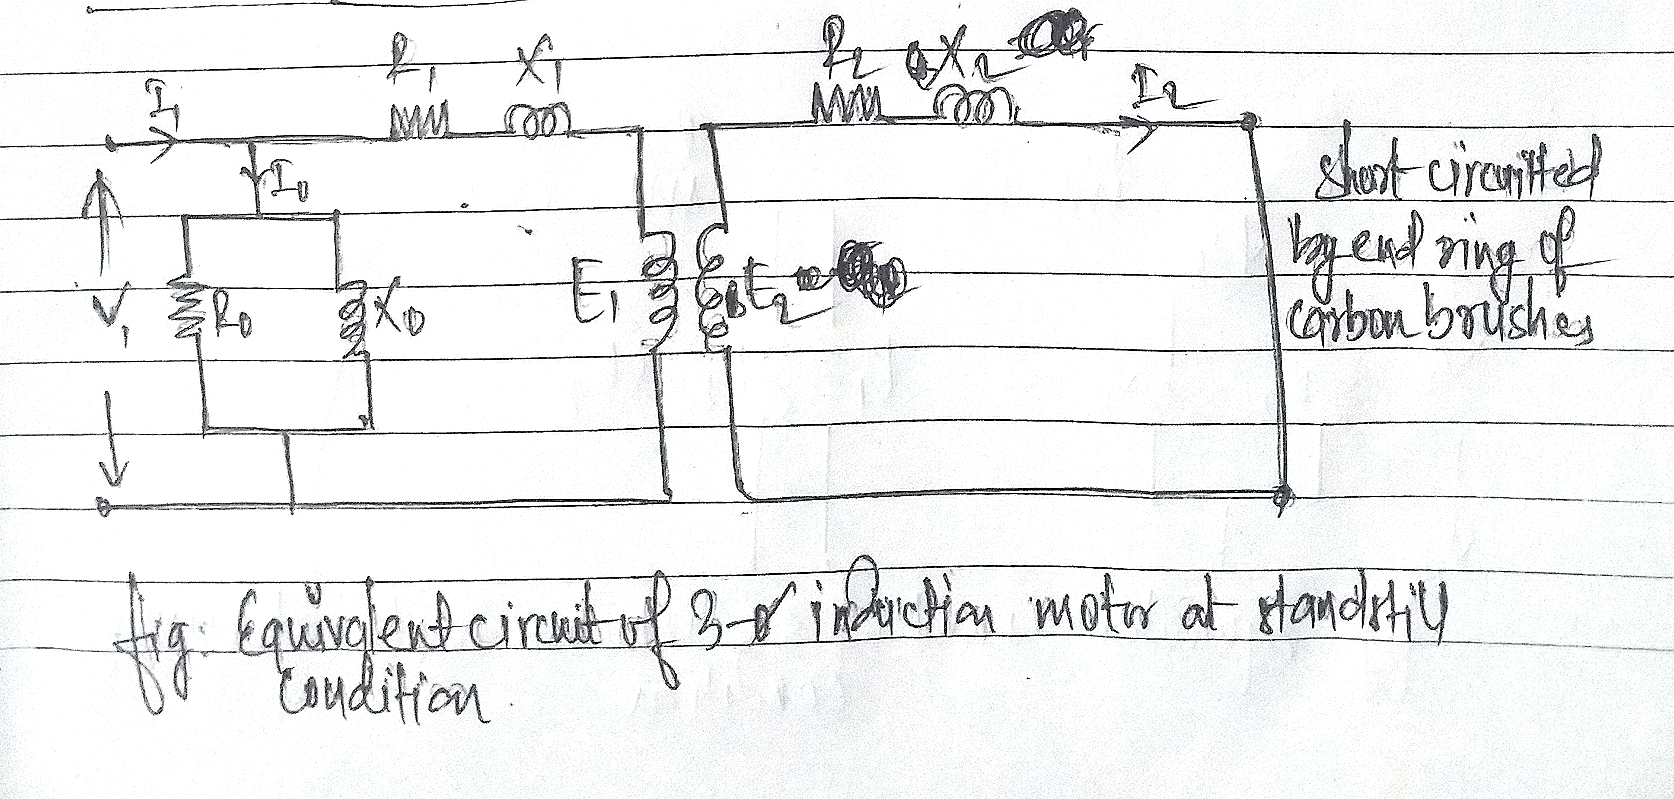 I₁
R₁
X₁
R₂
X₂
I₂
I₀
V₁
R₀
X₀
E₁
E₂
short circuitted
by end ring of
carbon brushes
fig: Equivalent circuit of 3-ø induction motor at standstill
condition.